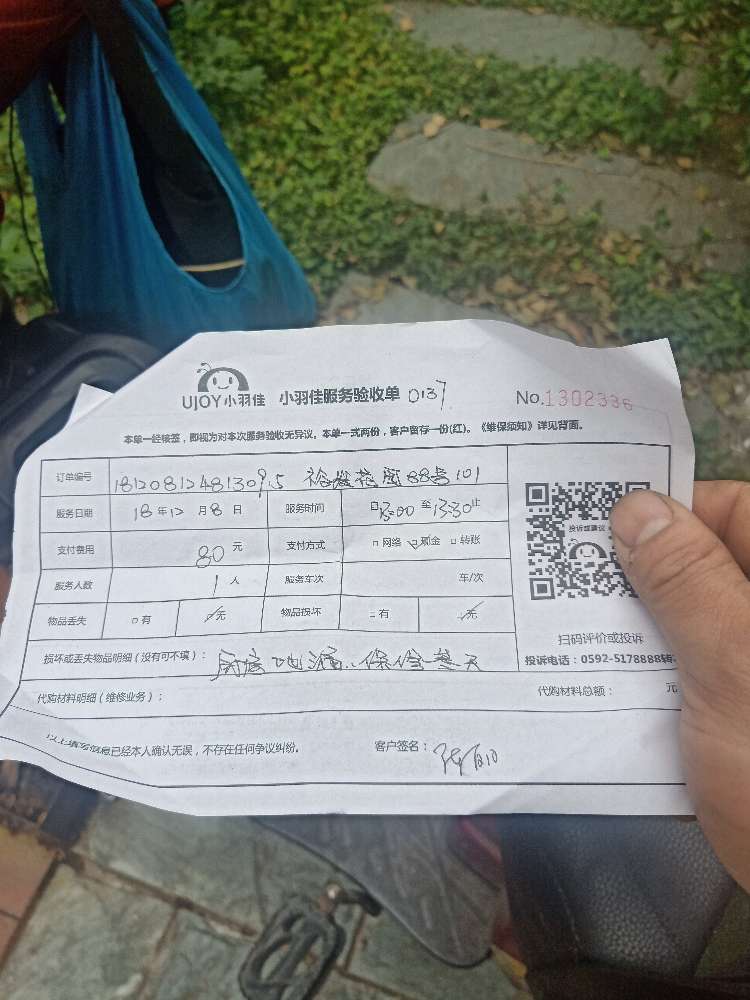 UJOY小羽佳 小羽佳服务验收单 0137 No.1302336
本单一经核签，即视为对本次服务验收无异议，本单一式两份，客户留存一份(红)。《维保须知》详见背面。
订单编号 88号101
服务日期 18年12月8日 服务时间 13:00至13:30止
支付费用 80元 支付方式 □网络 ☑现金 □转账
服务人数 1人 服务车次 车/次
物品丢失 □有 ☑无 物品损坏 □有 ☑无
损坏或丢失物品明细（没有可不填）： 厨房地漏..保修
代购材料明细（维修业务）： 代购材料总额： 元
已经本人确认无误，不存在任何争议纠纷。 客户签名：
投诉或建议
扫码评价或投诉
投诉电话：0592-5178888转